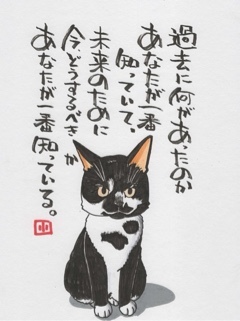 過去に何があったのか
あなたが一番
知っていて、
未来のために
今、どうするべきか
あなたが一番知っている。